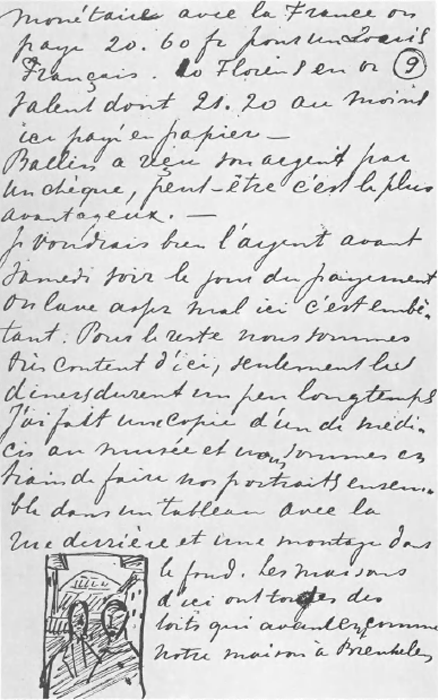 monétaire avec la France on
paye 20.60 fr pour un Louis
Français. 10 Florins en or
9
valent dont 21.20 au moins
ici payé en papier —
Ballin a reçu son argent par
un chèque, peut-être c'est le plus
avantageux. —
Je voudrais bien l'argent avant
Samedi soir le jour du payement
On lave assez mal ici c'est embê-
tant. Pour le reste nous sommes
très content d'ici, seulement les
diners durent un peu longtemps
J'ai fait une copie d'un de medi-
cis au musée et nous sommes en
train de faire nos portraits ensem-
ble dans un tableau avec la
rue derrière et une montage dans
le fond. Les maisons
d'ici ont toutes des
toits qui avancent comme
notre maison à Breukelen